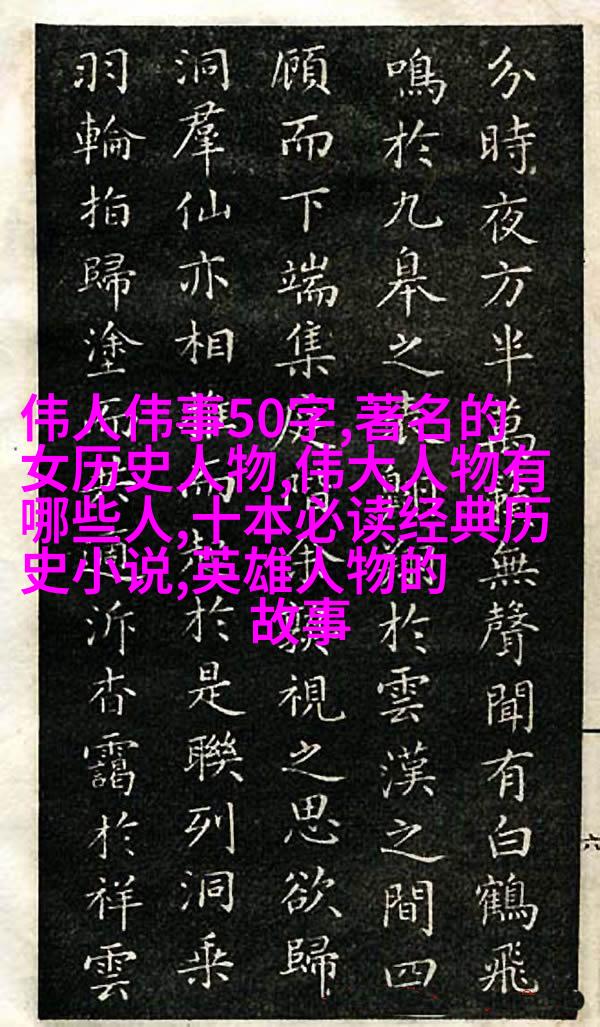 伟人伟事50字,著名的
女历史人物,伟大人物有
哪些人,十本必读经典历
史小说,英雄人物的
故事
分時夜方半萬無聲聞有白鶴飛
鳴於九皋之於雲漢之間四
顧而下端集視之思欲歸
洞羣仙亦相而於是聯列洞乘
羽輪指歸塗而泝杳靄於祥雲
六